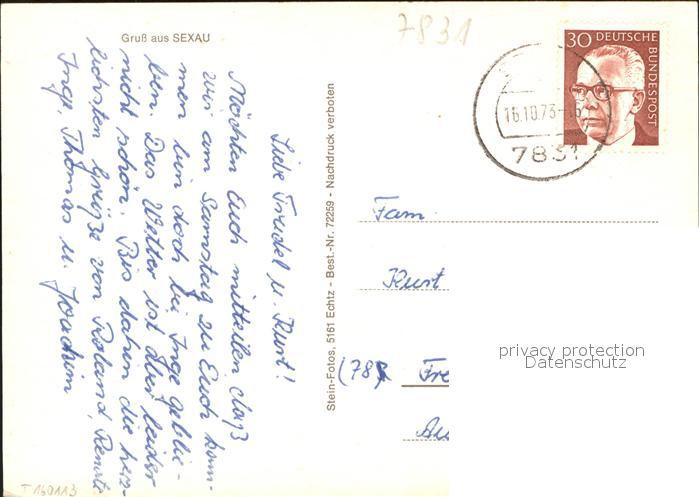 Gruß aus SEXAU
7831
30 DEUTSCHE
BUNDESPOST
16.10.73-16
7831
Liebe Friedel u. Kurt!
Möchten Euch mitteilen daß
wir am Samstag zu Euch kom-
men bin doch bei Inge geblie-
ben. Das Wetter ist aber leider
nicht schön. Bis dahin die herz-
lichsten Grüße von Roland, Renate
Inge, Thomas u. Joachim
Stein-Fotos, 5161 Echtz - Best.-Nr. 72259 - Nachdruck verboten
Fam.
Kurt
(78 Fre
Au
privacy protection
Datenschutz
T160113